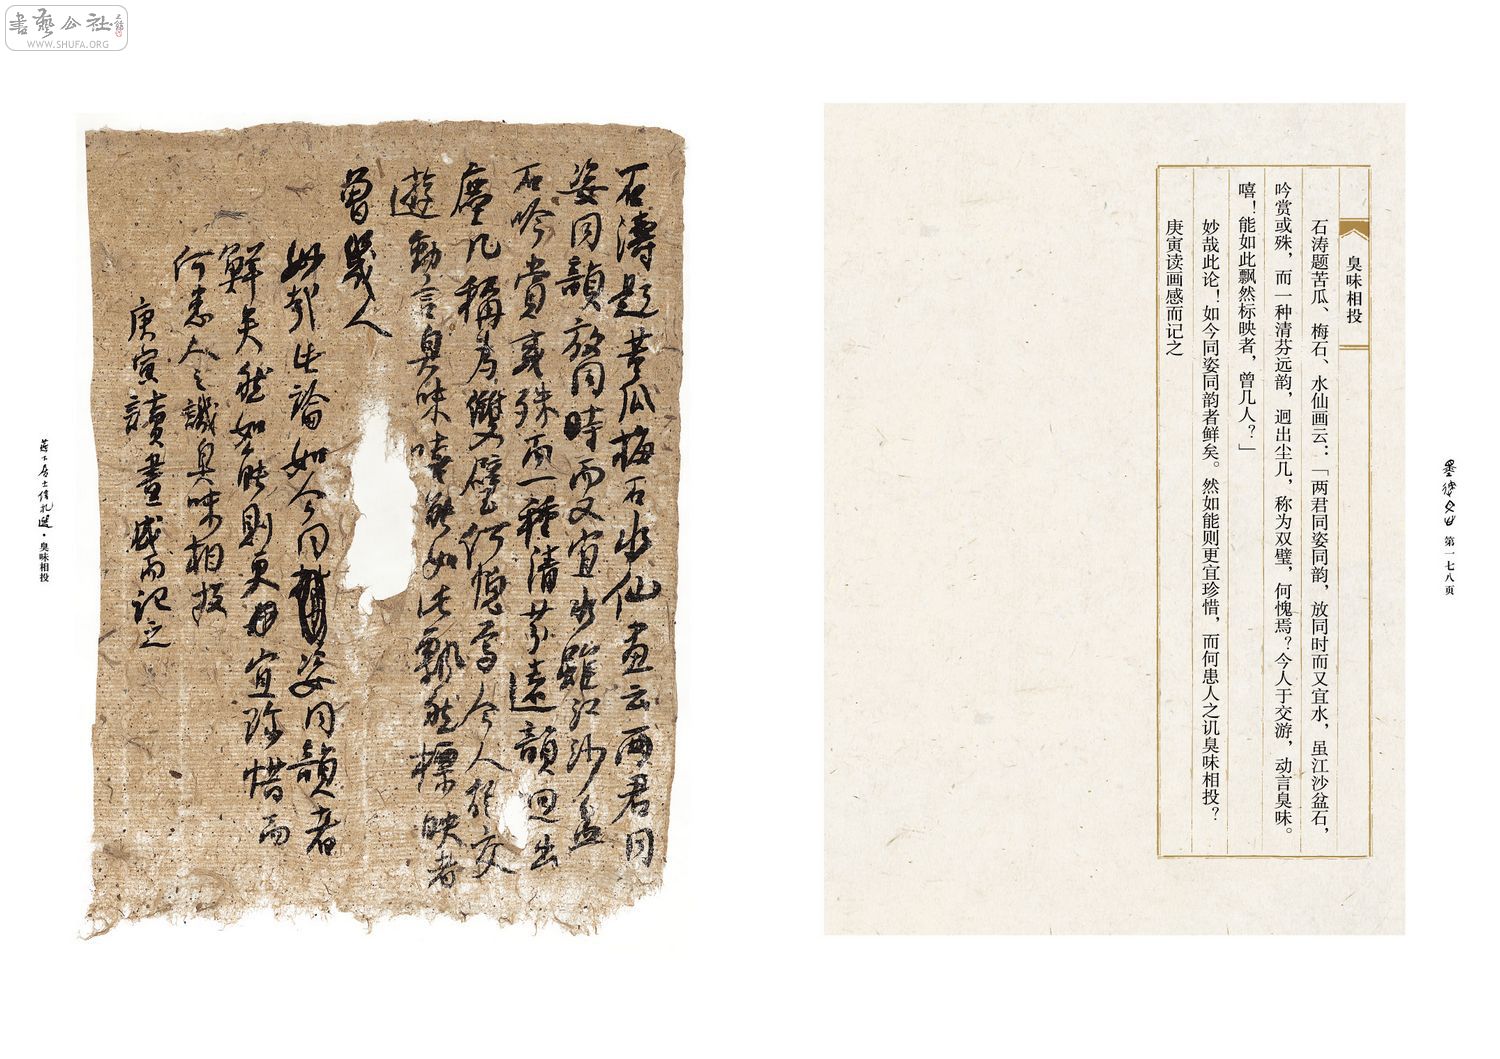 書藝公社
WWW.SHUFA.ORG
臭味相投
石涛题苦瓜、梅石、水仙画云：「两君同姿同韵，放同时而又宜水，虽江沙盆石，
吟赏或殊，而一种清芬远韵，迥出尘几，称为双璧，何愧焉？今人于交游，动言臭味。
嘻！能如此飘然标映者，曾几人？」
妙哉此论！如今同姿同韵者鲜矣。然如能则更宜珍惜，而何患人之讥臭味相投？
庚寅读画感而记之
第一七八页
石濤題苦瓜梅石水仙画云两君同
姿同韻放同時而又宜水雖江沙盆
石吟賞或殊而一種清芬遠韻迥出
塵几稱為雙璧何愧焉今人於交
遊動言臭味嘻能如此飄然標映者
曾幾人
妙哉此論如今同姿同韻者
鮮矣然如能則更宜珍惜而
何患人之譏臭味相投
庚寅讀畫感而記之
居士信札選·臭味相投